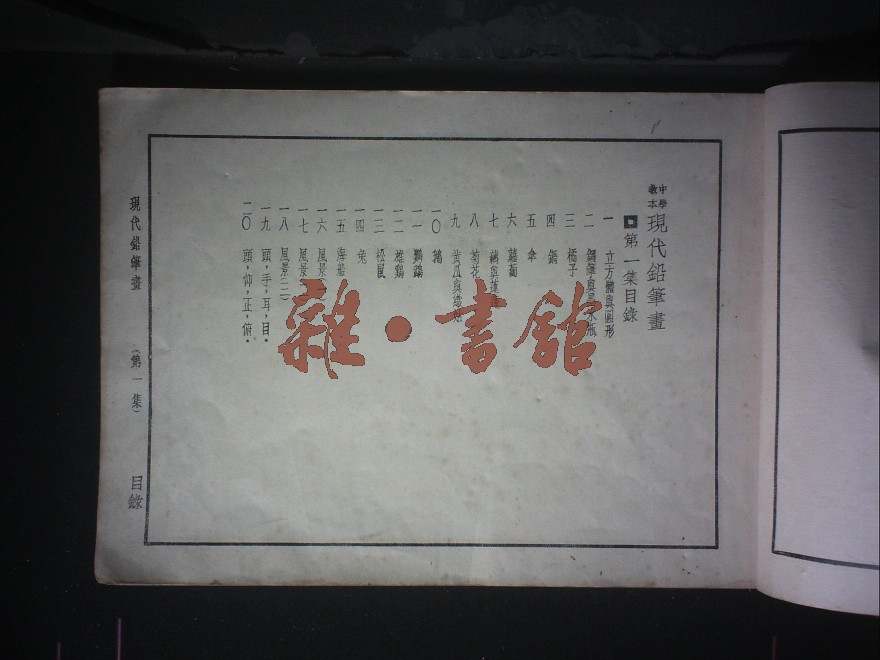 中學教本
現代鉛筆畫
第一集目錄
一 立方體與圓形
二
三 橘子
四 鍋
五 傘
六 蘿蔔
七 藕與蓮蓬
八 菊花
九 黃瓜與
一〇 鵝
一一 鸚鵡
一二 雄鷄
一三 松鼠
一四 兔
一五 海船
一六 風景(一)
一七 風景
一八 風景(三)
一九 頭，手，耳，目。
二〇 頭，仰，正，俯。
現代鉛筆畫 (第一集) 目錄
雜·書館